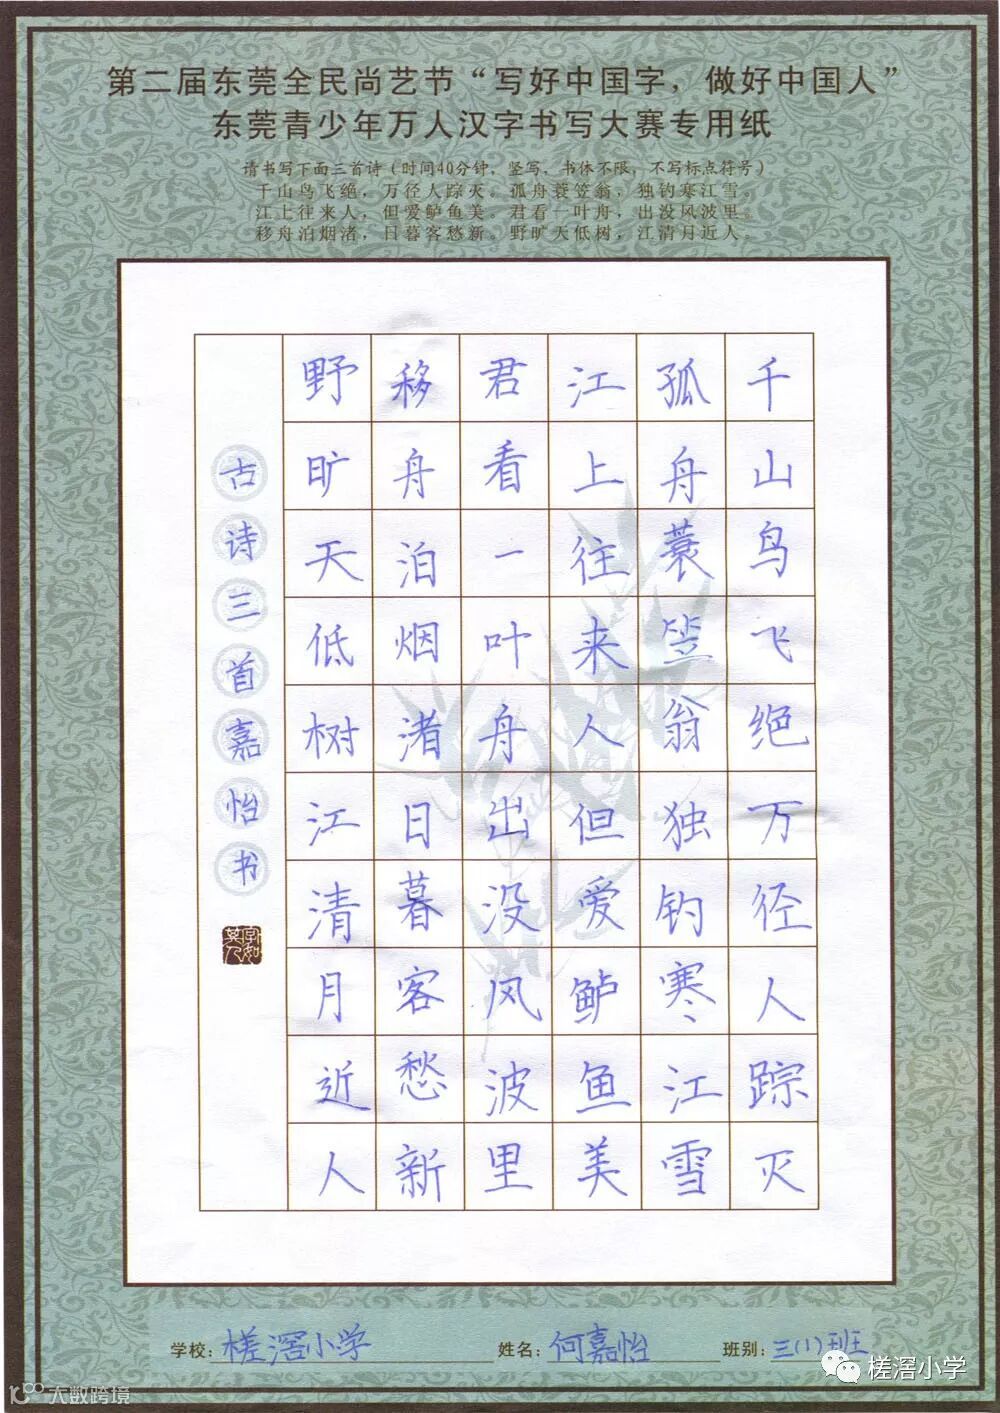 第二届东莞全民尚艺节“写好中国字，做好中国人”
东莞青少年万人汉字书写大赛专用纸
请书写下面三首诗（时间40分钟，竖写，书体不限，不写标点符号）
千山鸟飞绝，万径人踪灭。孤舟蓑笠翁，独钓寒江雪。
江上往来人，但爱鲈鱼美。君看一叶舟，出没风波里。
移舟泊烟渚，日暮客愁新。野旷天低树，江清月近人。
千山鸟飞绝万径人踪灭
孤舟蓑笠翁独钓寒江雪
江上往来人但爱鲈鱼美
君看一叶舟出没风波里
移舟泊烟渚日暮客愁新
野旷天低树江清月近人
古诗三首嘉怡书
字如其人
学校：槎滘小学 姓名：何嘉怡 班别：三(1)班
槎滘小学
大数跨境